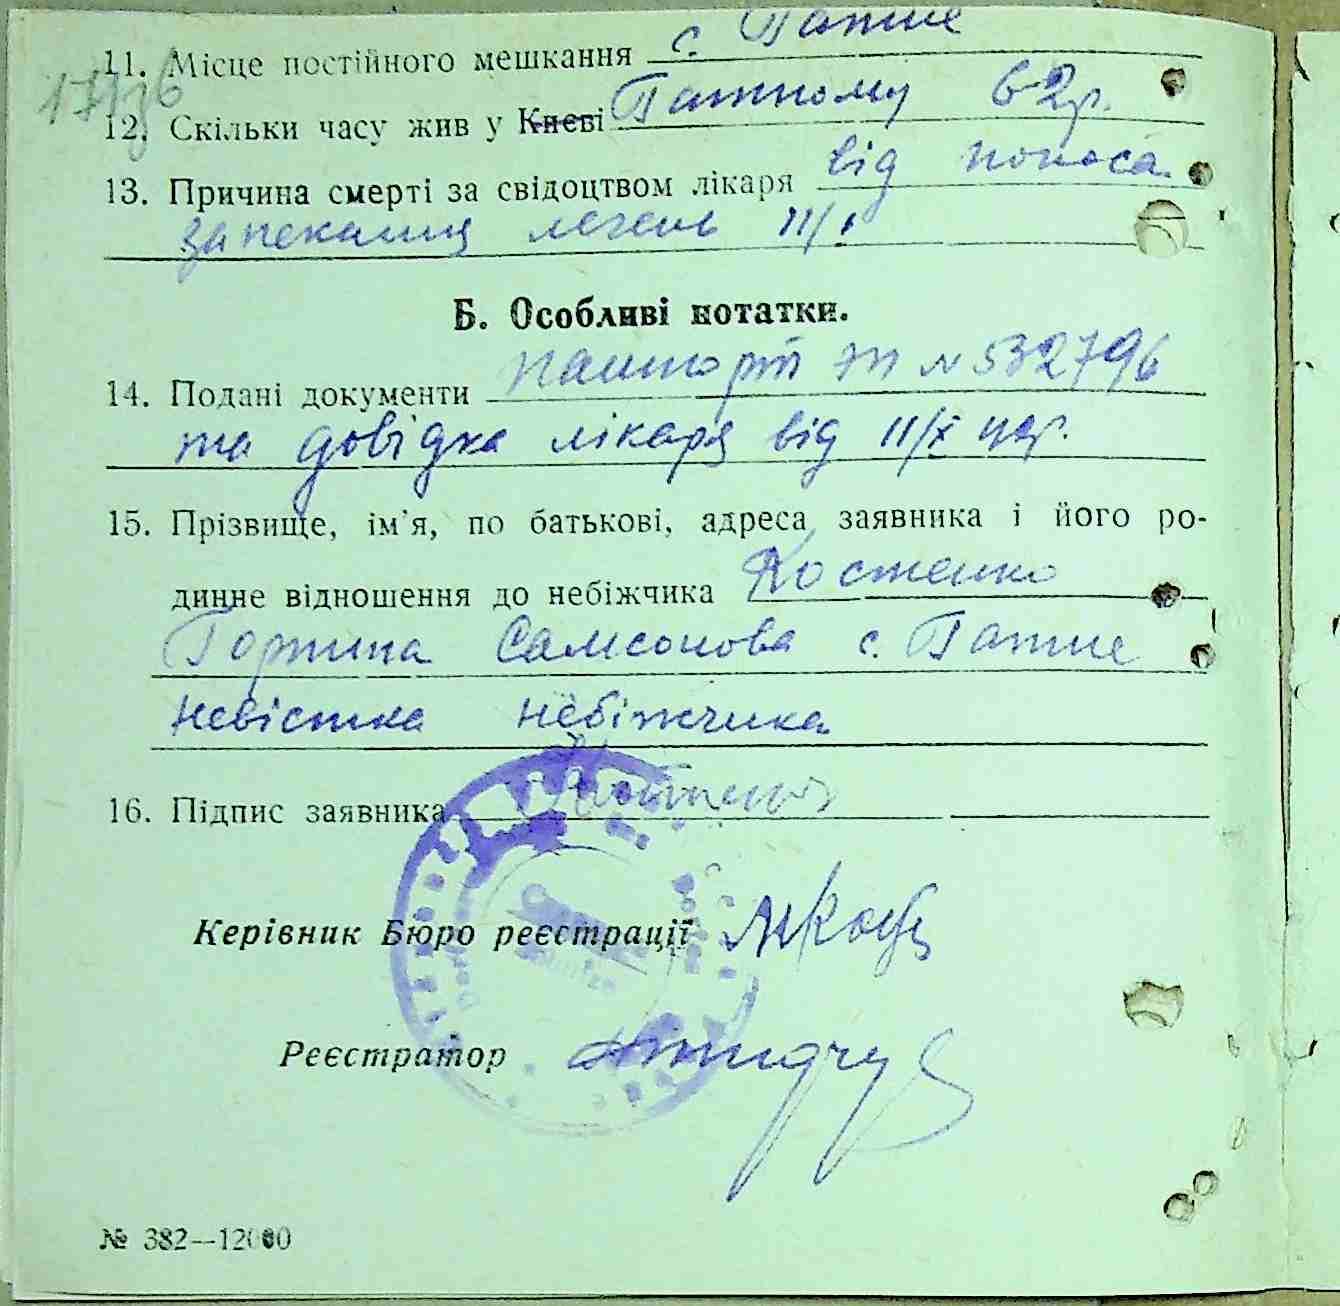 11. Місце постійного мешкання с. Гатне
12. Скільки часу жив у Києві Гатному 62 р.
13. Причина смерті за свідоцтвом лікаря від поноса
запекання легень
Б. Особливі нотатки.
14. Подані документи пашпорт № 532796
та довідка лікаря від 11/X ц.р.
15. Прізвище, ім'я, по батькові, адреса заявника і його ро-
динне відношення до небіжчика Костенко
Горпина Самсонова с. Гатне
невістка небіжчика
16. Підпис заявника
Керівник Бюро реєстрації
Реєстратор
№ 382—12000